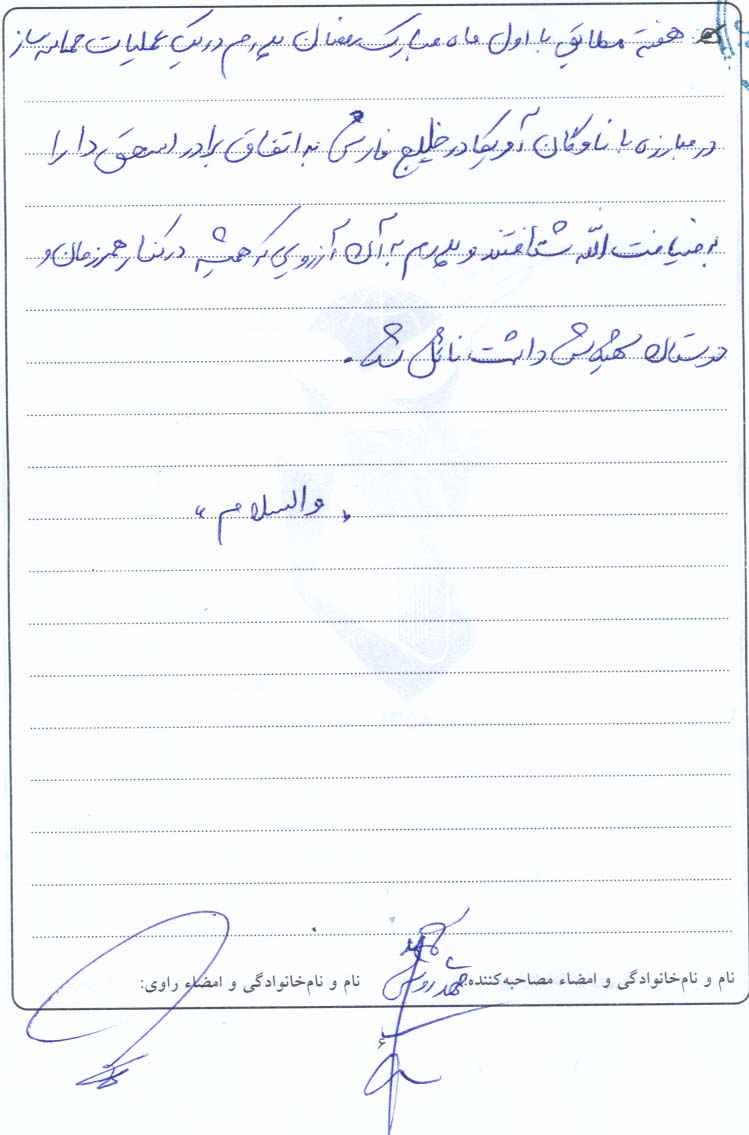 هفته مطابق با اول ماه مبارک رمضان پدرم در یک عملیات حماسه ساز
در مبارزه با ناوگان آمریکا در خلیج فارس به اتفاق برادر اسحق دارا
به ضیافت الله شتافتند و پدرم به آن آرزویی که همیشه در کنار همرزمان و
دوستان شهیدش داشت نائل شد.
"والسلام"
نام و نام‌خانوادگی و امضاء مصاحبه‌کننده:
نام و نام‌خانوادگی و امضاء راوی:
۶